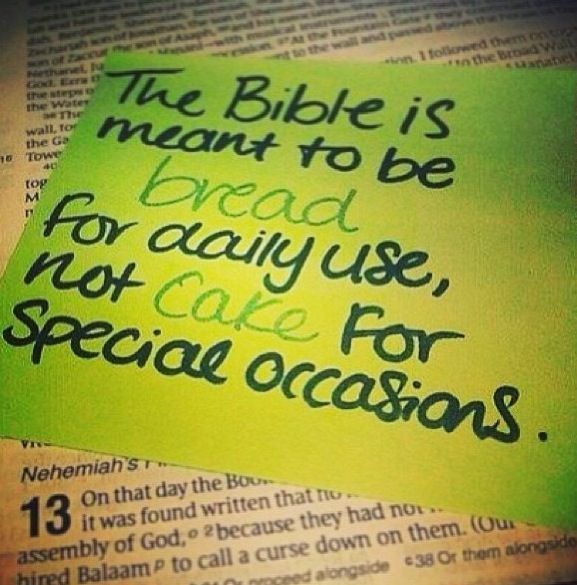 Zechariah son of
son of Zaccur, the son of Asaph,
Nethanel,
God. Ezra
the steps
the Water
The
wall, to
the
16 Towe
40
tog
M
tion. I followed them on top
to the Broad Wall,
The Bible is
meant to be
bread
for daily use,
not cake for
special occasions.
Nehemiah's
13 On that day the Boo
it was found written that no
assembly of God, o 2 because they had not
hired Balaam p to call a curse down on them. (Our
proceed alongside c 38 Or them alongside